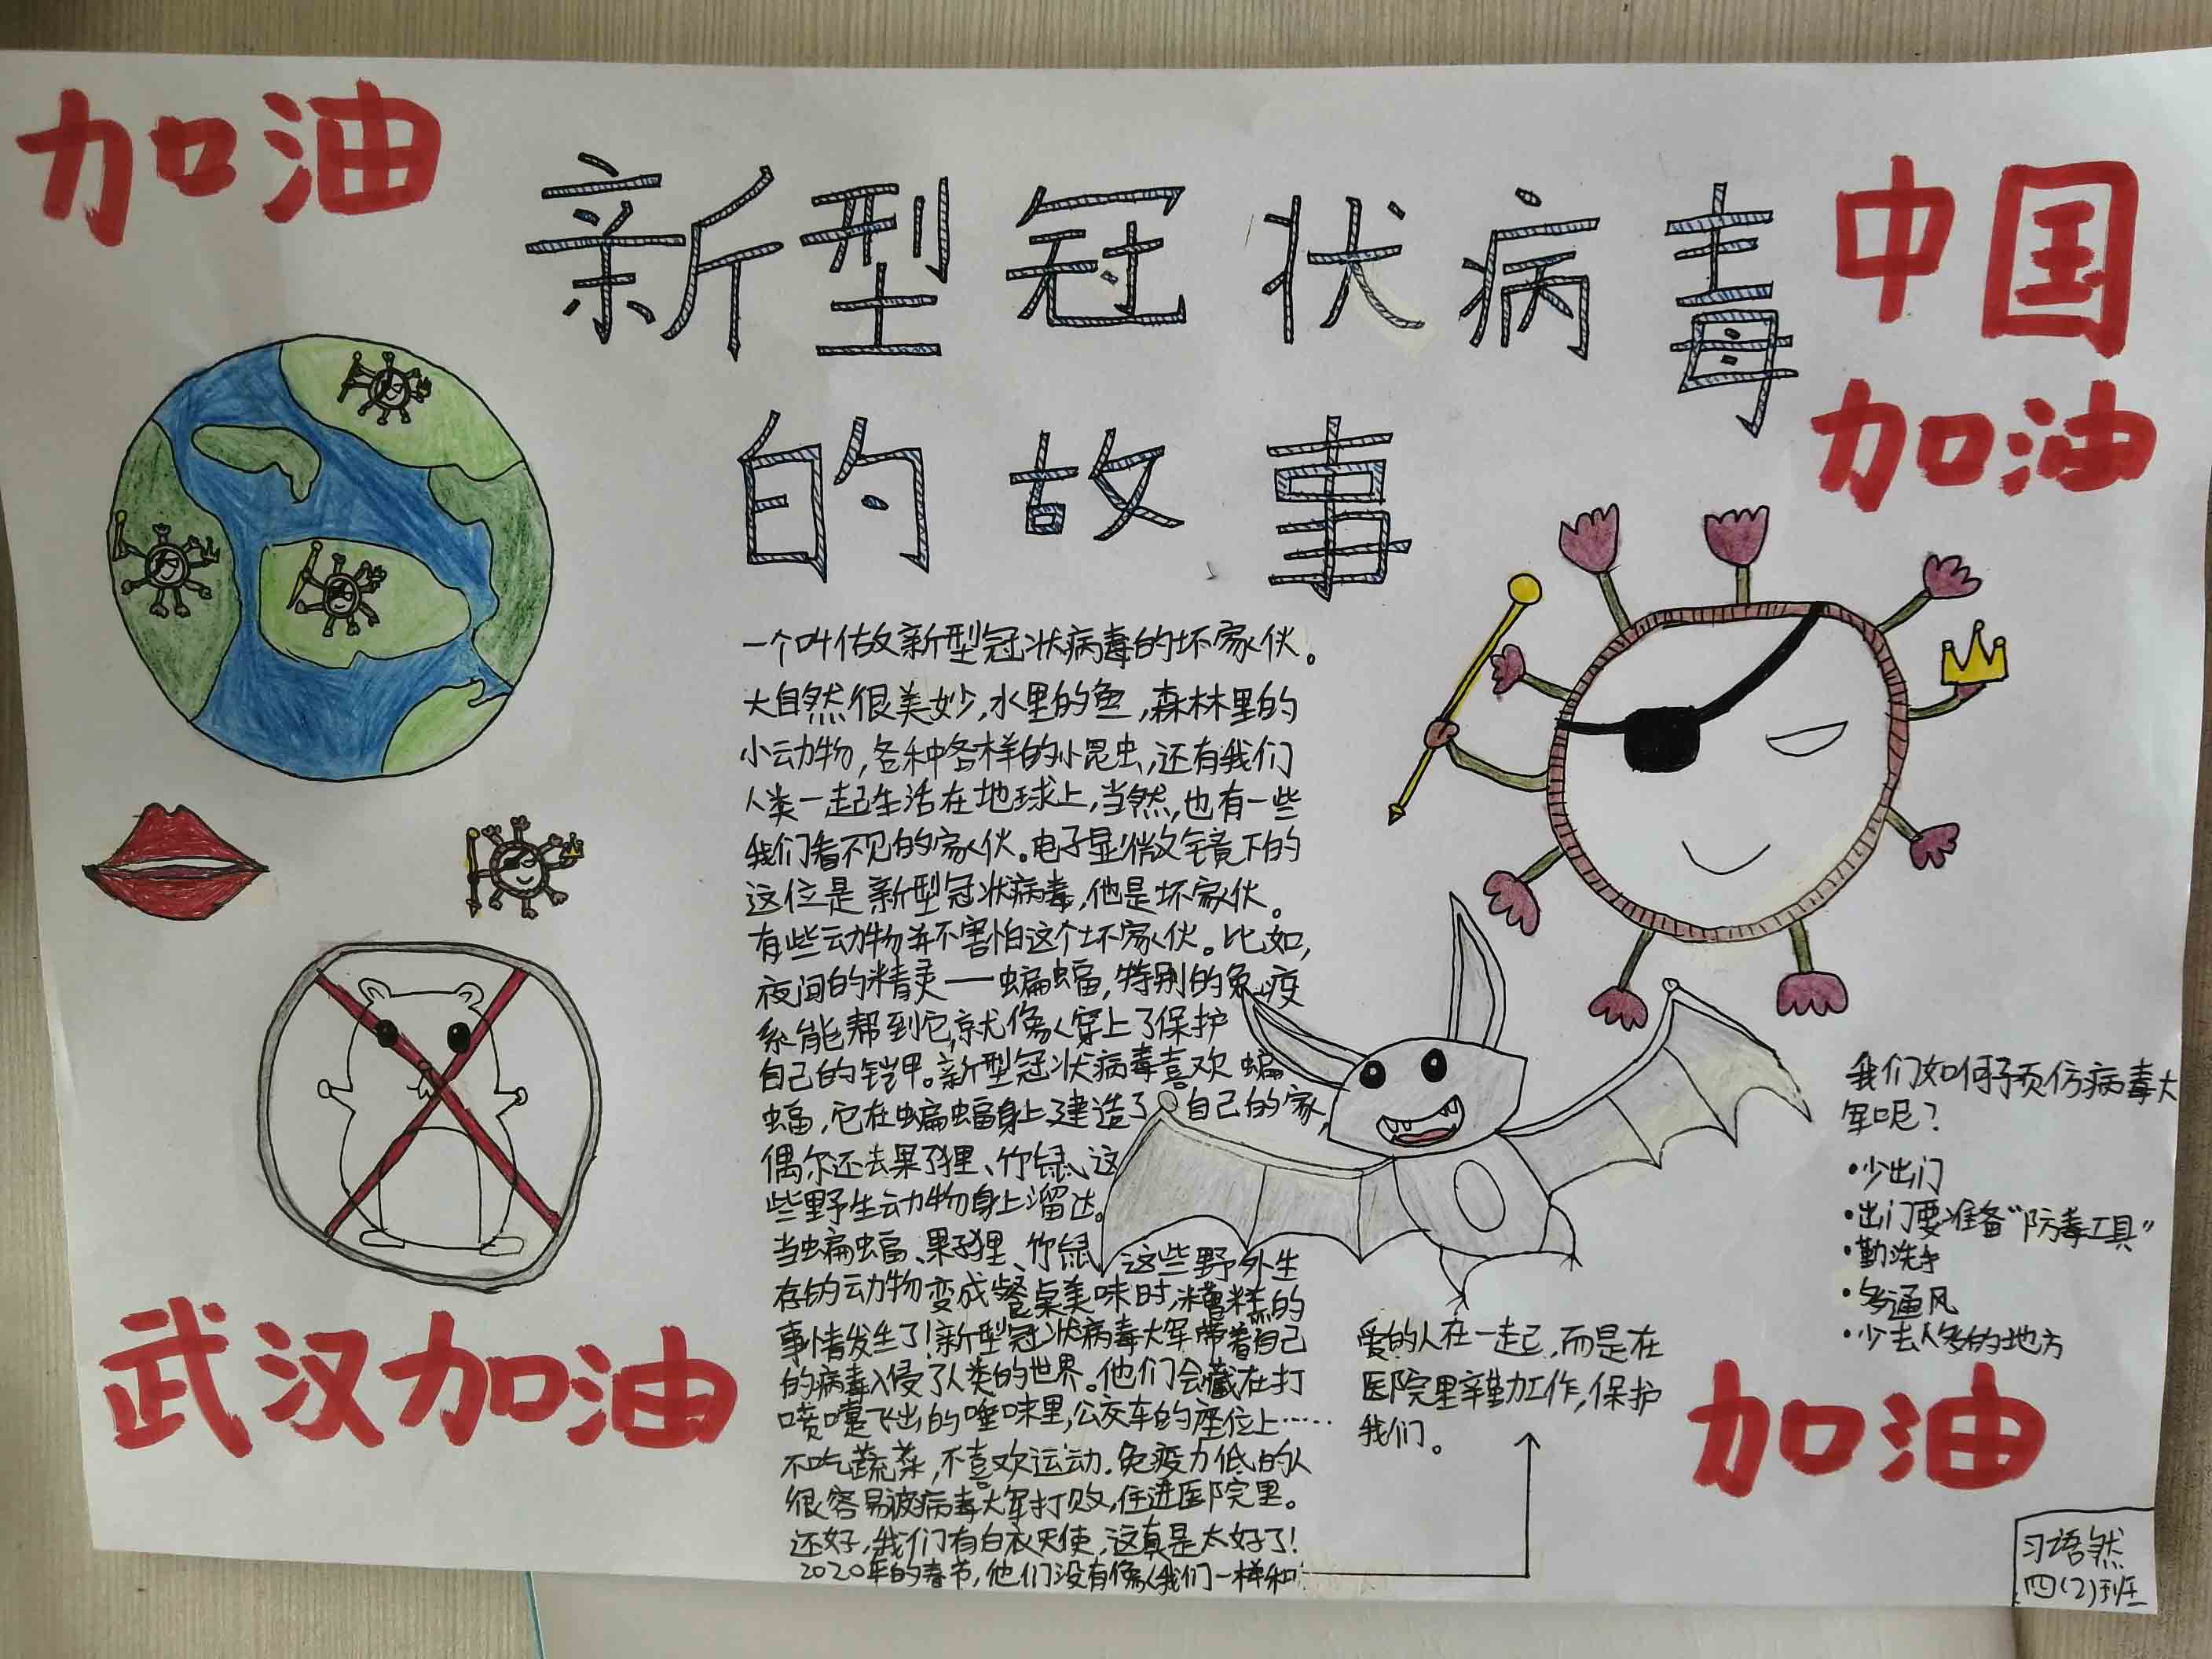 加油
新型冠状病毒
的故事
中国
加油
一个叫做新型冠状病毒的坏家伙。
大自然很美妙,水里的鱼,森林里的
小动物,各种各样的小昆虫,还有我们
人类一起生活在地球上,当然,也有一些
我们看不见的家伙。电子显微镜下的
这位是新型冠状病毒,他是坏家伙。
有些动物并不害怕这个坏家伙。比如,
夜间的精灵——蝙蝠,特别的免疫
系能帮到它,就像穿上了保护
自己的铠甲。新型冠状病毒喜欢蝙
蝠,它在蝙蝠身上建造了自己的家,
偶尔还去果子狸、竹鼠、这
些野生动物身上溜达。
当蝙蝠、果子狸、竹鼠这些野外生
存的动物变成餐桌美味时,糟糕的
事情发生了!新型冠状病毒大军带着自己
的病毒入侵了人类的世界。他们会藏在打
喷嚏飞出的唾沫里,公交车的座位上……
不吃蔬菜,不喜欢运动.免疫力低的人
很容易被病毒大军打败,住进医院里。
还好,我们有白衣天使,这真是太好了!
2020年的春节,他们没有像我们一样和
爱的人在一起,而是在
医院里辛勤工作,保护
我们。
我们如何预仿病毒大
军呢?
•少出门
•出门要准备“防毒工具”
•勤洗手
•多通风
•少去人多的地方
武汉加油
加油
习语然
四(2)班